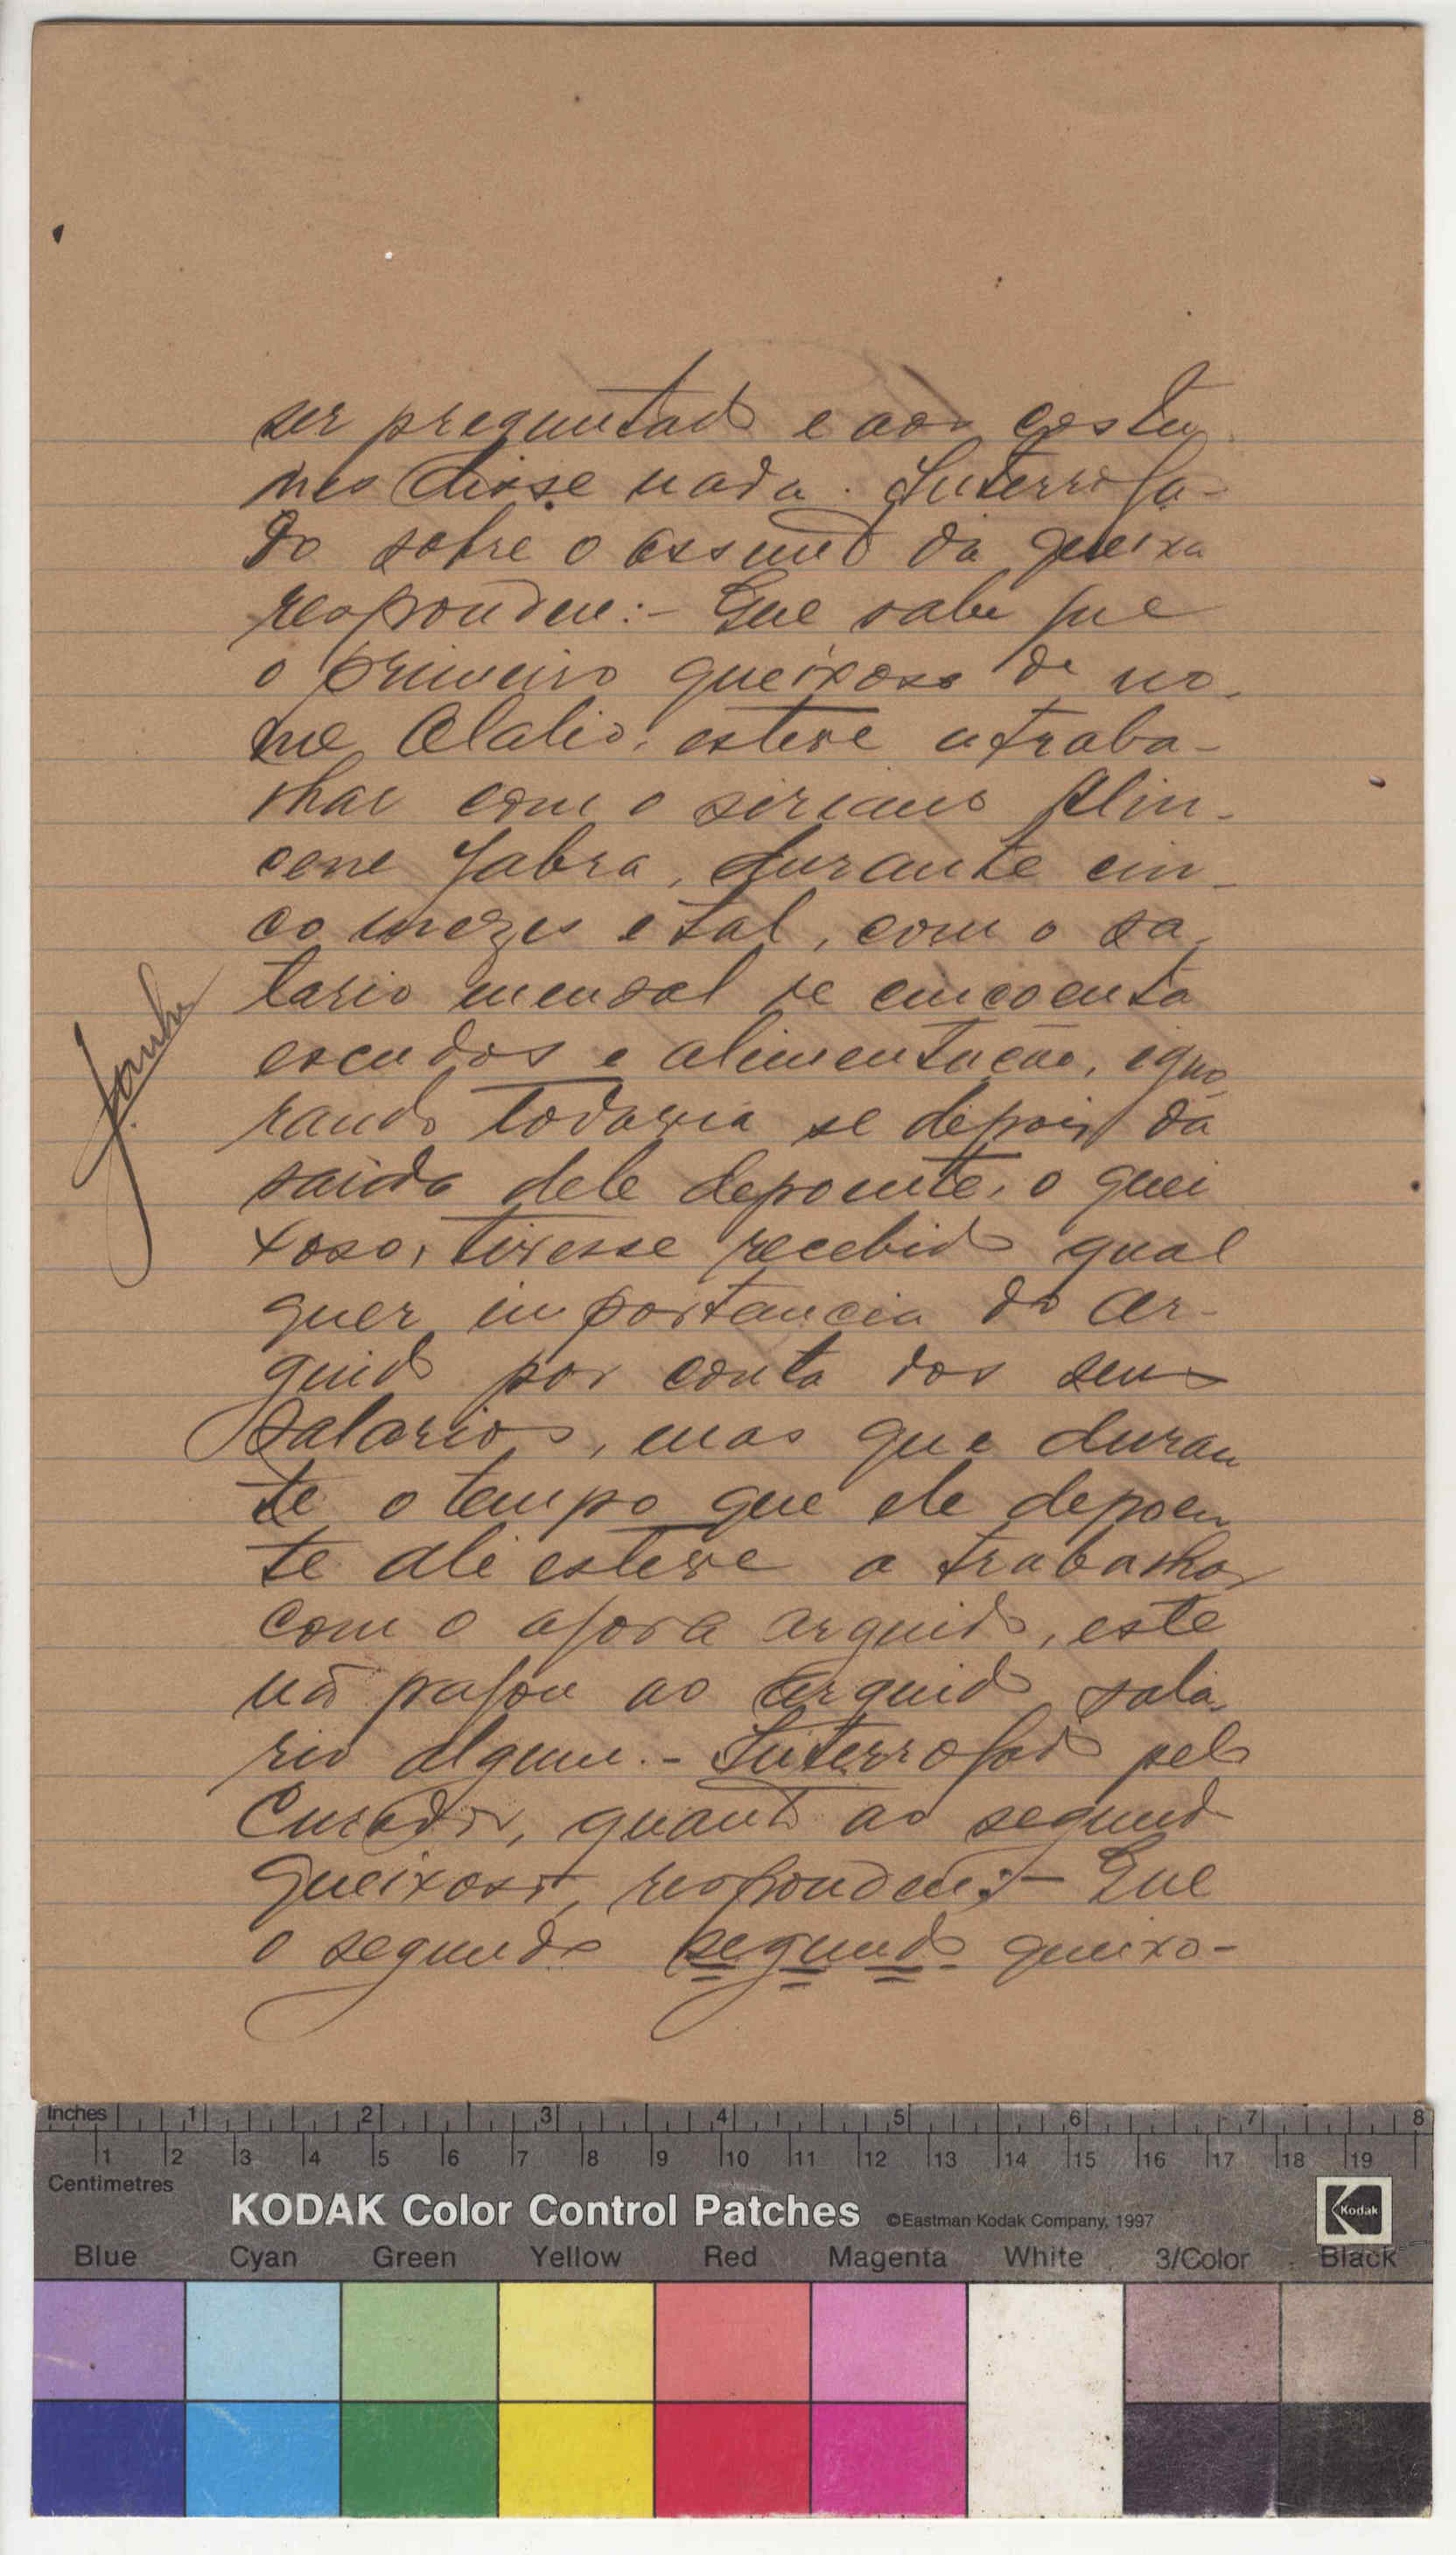 ser preguntado e aos costu
mes disse nada. Interroga-
do sobre o assunto da queixa
respondeu:- Que sabe que
o primeiro queixoso de no-
me Olalio, esteve a traba-
lhar com o siriano Alin-
cene Jabra, durante cin-
co mezes e tal, com o sa-
lario mensal de cincoenta
escudos e alimentação, igno
rando todavia se depois da
saida dele depoente, o quei
xoso, tivesse recebido qual
quer importancia do ar-
guido por conta dos seus
salarios, mas que duran
te o tempo que ele depoen
te ali esteve a trabalhar
com o agora arguido, este
não pagou ao arguido sala
rio algum.- Interrogado pelo
Curador, quanto ao segundo
queixoso, respondeu:- Que
o segundo segundo queixo-
Inches 1 2 3 4 5 6 7 8
1 2 3 4 5 6 7 8 9 10 11 12 13 14 15 16 17 18 19
Centimetres
KODAK Color Control Patches ©Eastman Kodak Company, 1997 Kodak
Blue Cyan Green Yellow Red Magenta White 3/Color Black